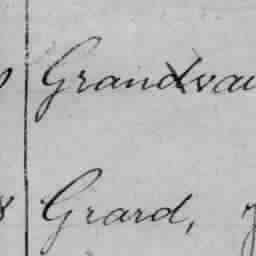 Grandvau
Grard,